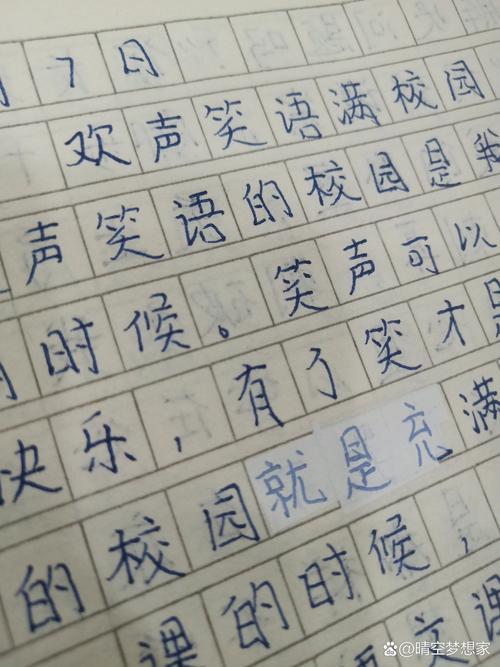 月7日
欢声笑语满校园
声笑语的校园是我
的时候。笑声可以
快乐，有了笑才是
的校园就是充满
的校园的时候，
课的时候，
@晴空梦想家